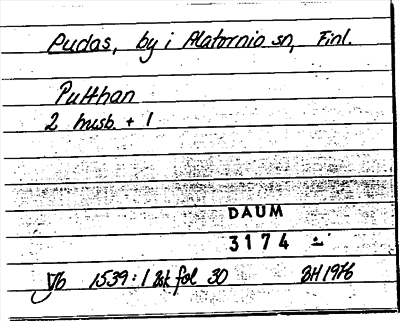 Pudas, by i Alatornio sn, Finl.
Putthan
2 husb. + 1
DAUM
3174
Jb 1539:1 Zsk fol 30 BH 1976